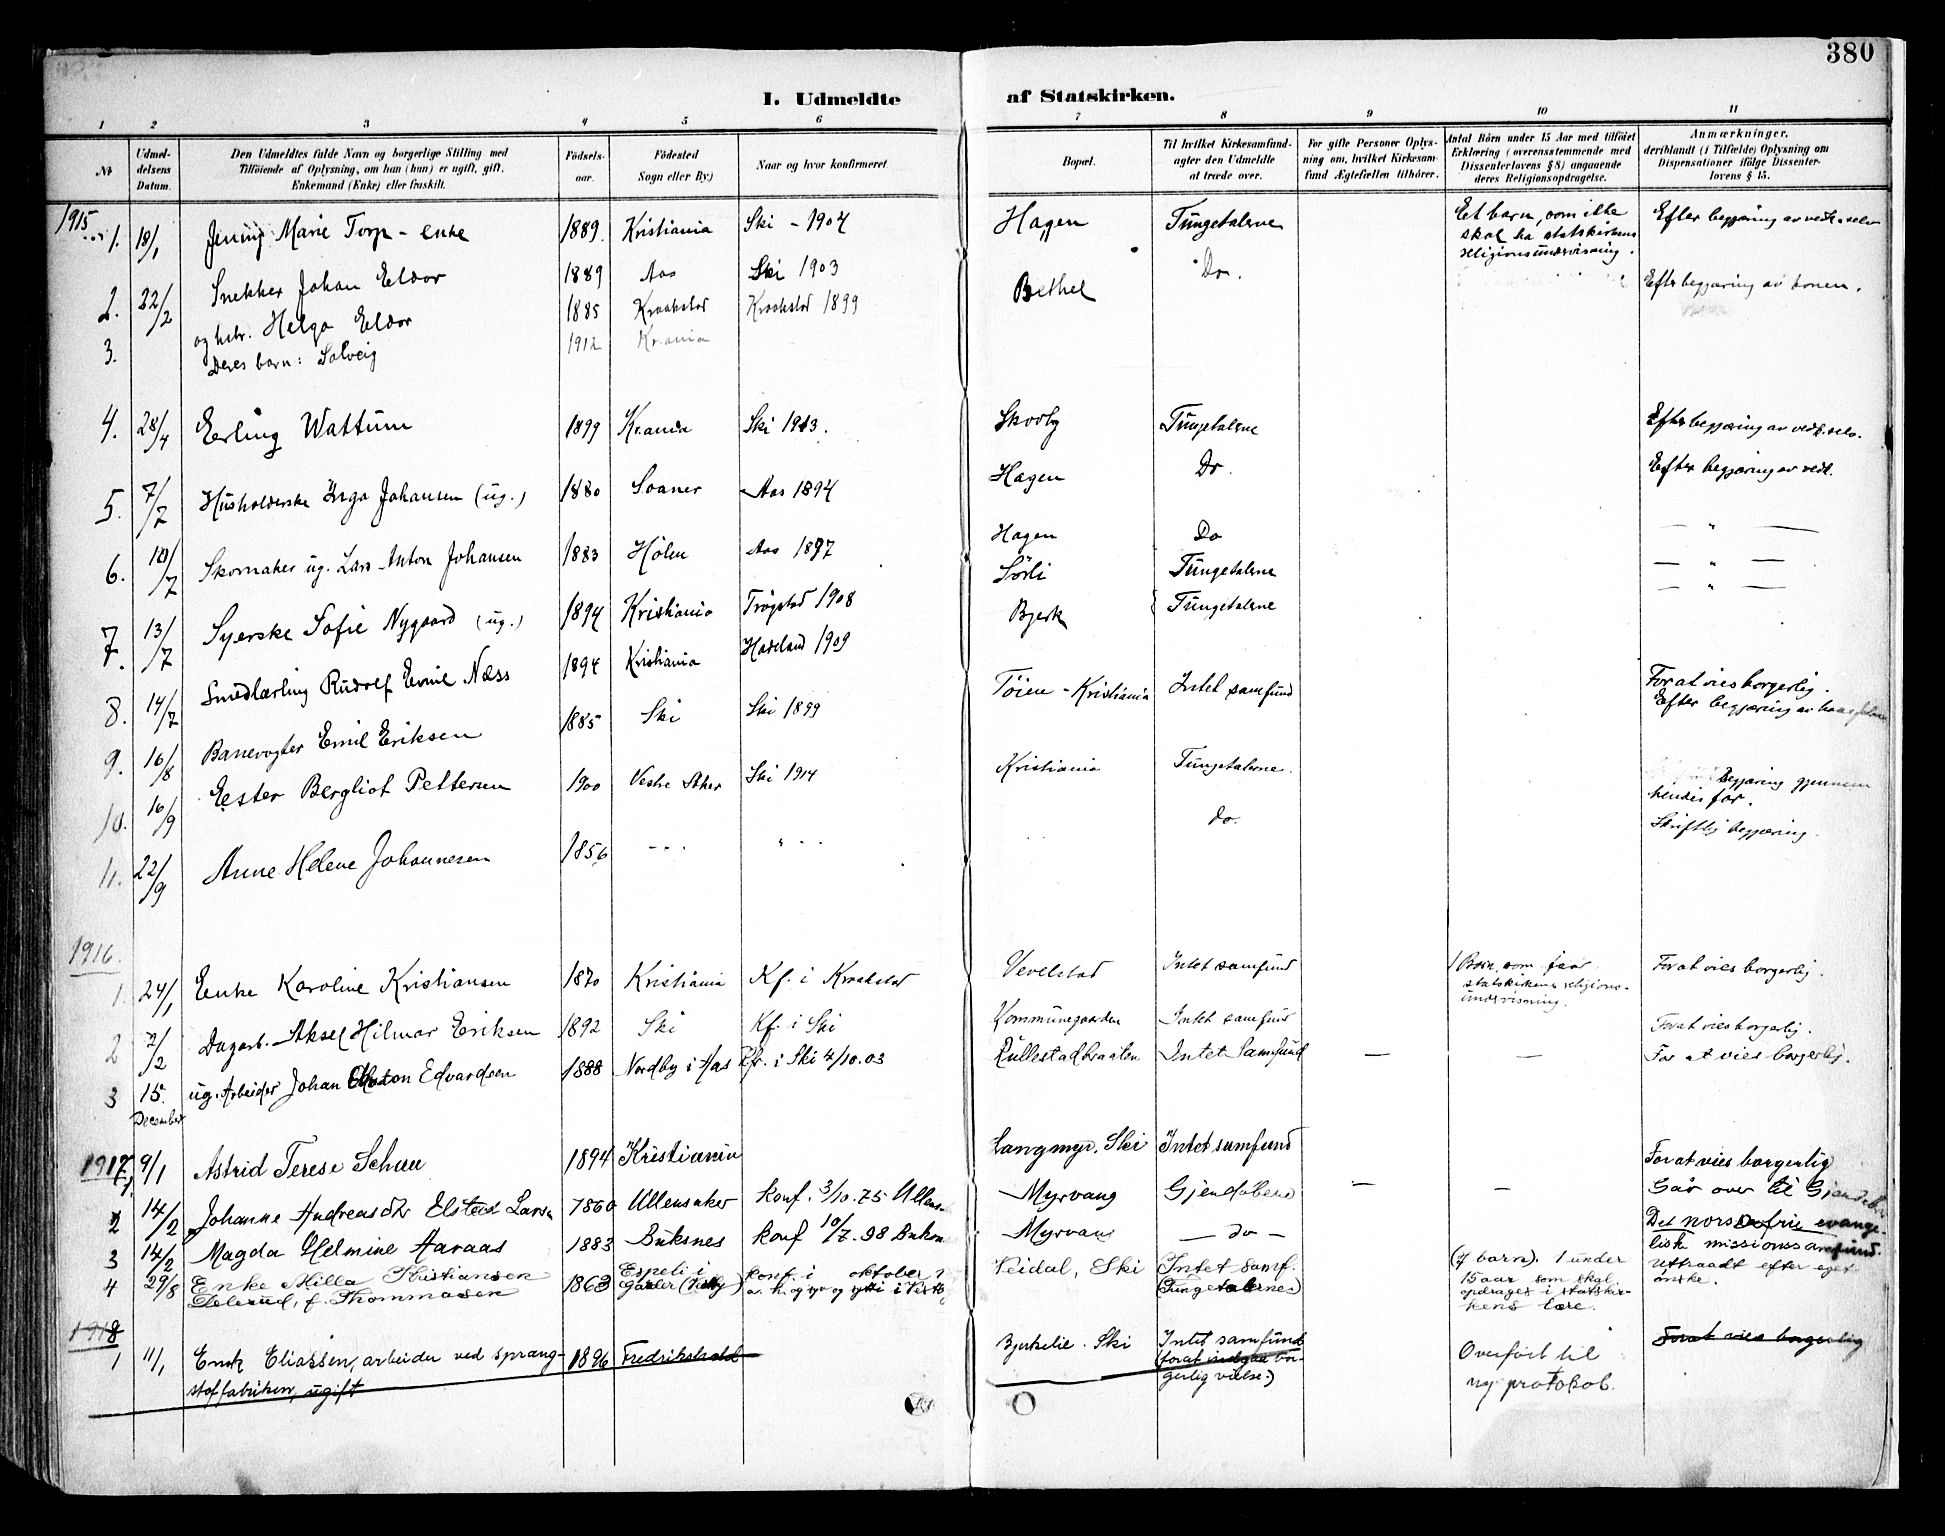 380
I. Udmeldte af Statskirken.
1 2 3 4 5 6 7 8 9 10 11
№
Udmeldelsens Datum.
Den Udmeldtes fulde Navn og borgerlige Stilling med
Tilføiende af Oplysning, om han (hun) er ugift, gift,
Enkemand (Enke) eller fraskilt.
Fødselsaar.
Fødested
Sogn eller By)
Naar og hvor konfirmeret
Bopæl.
Til hvilket Kirkesamfund-
agter den Udmeldte
at træde over.
For gifte Personer Oplys-
ning om, hvilket Kirkesam-
fund Ægtefællen tilhører.
Antal Børn under 15 Aar med tilføiet
Erklæring (overensstemmende med
Dissenterlovens § 8) angaaende
deres Religionsopdragelse.
Anmærkninger,
deriblandt (i Tilfælde) Oplysning om
Dispensationer ifølge Dissenter-
lovens § 15.
1915
1. 18/1 Jenny Marie Torp - enke 1889. Kristiania Ski - 1904 Hagen Tungetalerne Et barn, som ikke skal ha statskirkens religionsundervisning. Efter begjæring av vedk. selv
2. 22/2 Snekker Johan Eldor 1889 Aas Ski 1903 Bethel Do. Efter begjæring av konen.
3. og hstr. Helga Eldor 1885 Kraakstad Kraakstad 1899
Deres barn: Solveig 1912 Kr.ania
4. 28/4 Erling Wattum 1899 Kr.ania Ski 1913. Skovby Tungetalerne Efter begjæring av vedk. selv.
5. 7/7 Husholderske Inga Johansen (ug.) 1880 Soaner Aas 1894 Hagen Do. Efter begjæring av vedk.
6. 10/7 Skomaker ug. Lars Anton Johansen 1883 Hølen Aas 1897 Hagen Do — " —
7. 13/7 Syerske Sofie Nygaard (ug.) 1894 Kristiania Trøgstad 1908 Sørli Tungetalerne — " —
8. 14/7 Smedlærling Rudolf Emil Næss 1894 Kristiania Hadeland 1909 Bjerk Tungetalerne — " —
9. 16/8 Banevogter Emil Eriksen 1885 Ski Ski 1899 Tøien - Kristiania Intet samfund For at vies borgerlig.
Efter begjæring av
10. 16/9 Ester Bergliot Pettersen 1900 Vestre Aker Ski 1914 Kristiania Tungetalerne. Begjæring gjennem hendes far.
11. 22/9 Anne Helene Johannesen 1856 - - - " - - do. Skriftlig begjæring.
1916.
1. 24/1 Enke Karoline Kristiansen 1870 Kristiania Kf. i Kraakstad Vevelstad Intet samfund 1 Barn, som faar statskirkens religions-undervisning. For at vies borgerlig.
2 7/2 Dagarb. Aksel Hilmar Eriksen 1892 Ski Kf. i Ski Kommunegaarden Intet samfund For at vies borgerlig.
3 15. December ug. Arbeider Johan Edvardsen 1888 Nordby i Aas Kfr. i Ski 4/10.03 Rullestadbraaten Intet Samfund — — For at vies borgerlig.
1917
1. 9/1 Astrid Terese Schuu 1894 Kristiania Langmyr. Ski Intet samfund For at vies borgerlig
2 14/2 Johanne Andreasdtr Elsted Larsen 1860 Ullensaker Konf. 3/10.75 Ullens- Myrvang Gjendøbere — — Går over til Gjendøbe
3 14/2 Magda Helmine Aaraas 1883 Buksnes konf 10/7.98 Buksn Myrvang — do — Det norske frie evange-liske missionssamfund.
4 29/8 Enke Milla Kristiansen Elelerud, f. Thommasen 1863 Espeli i Garder (Vestby) konf. i oktober Veidal, Ski Intet samf. (Tungetalernes) (7 barn). 1 under 15 aar som skal opdrages i statskir-kens lære. Uttraadt efter eget ønske.
1918
1 11/1 Enok Eliassen, arbeider ved spræng-stoffabriken, ugift 1896 Fredrikshald Bjerkelie. Ski Intet samfund (forat indgaa bor-gerlig vielse.) Overført til ny protokol. For at vies borgerlig